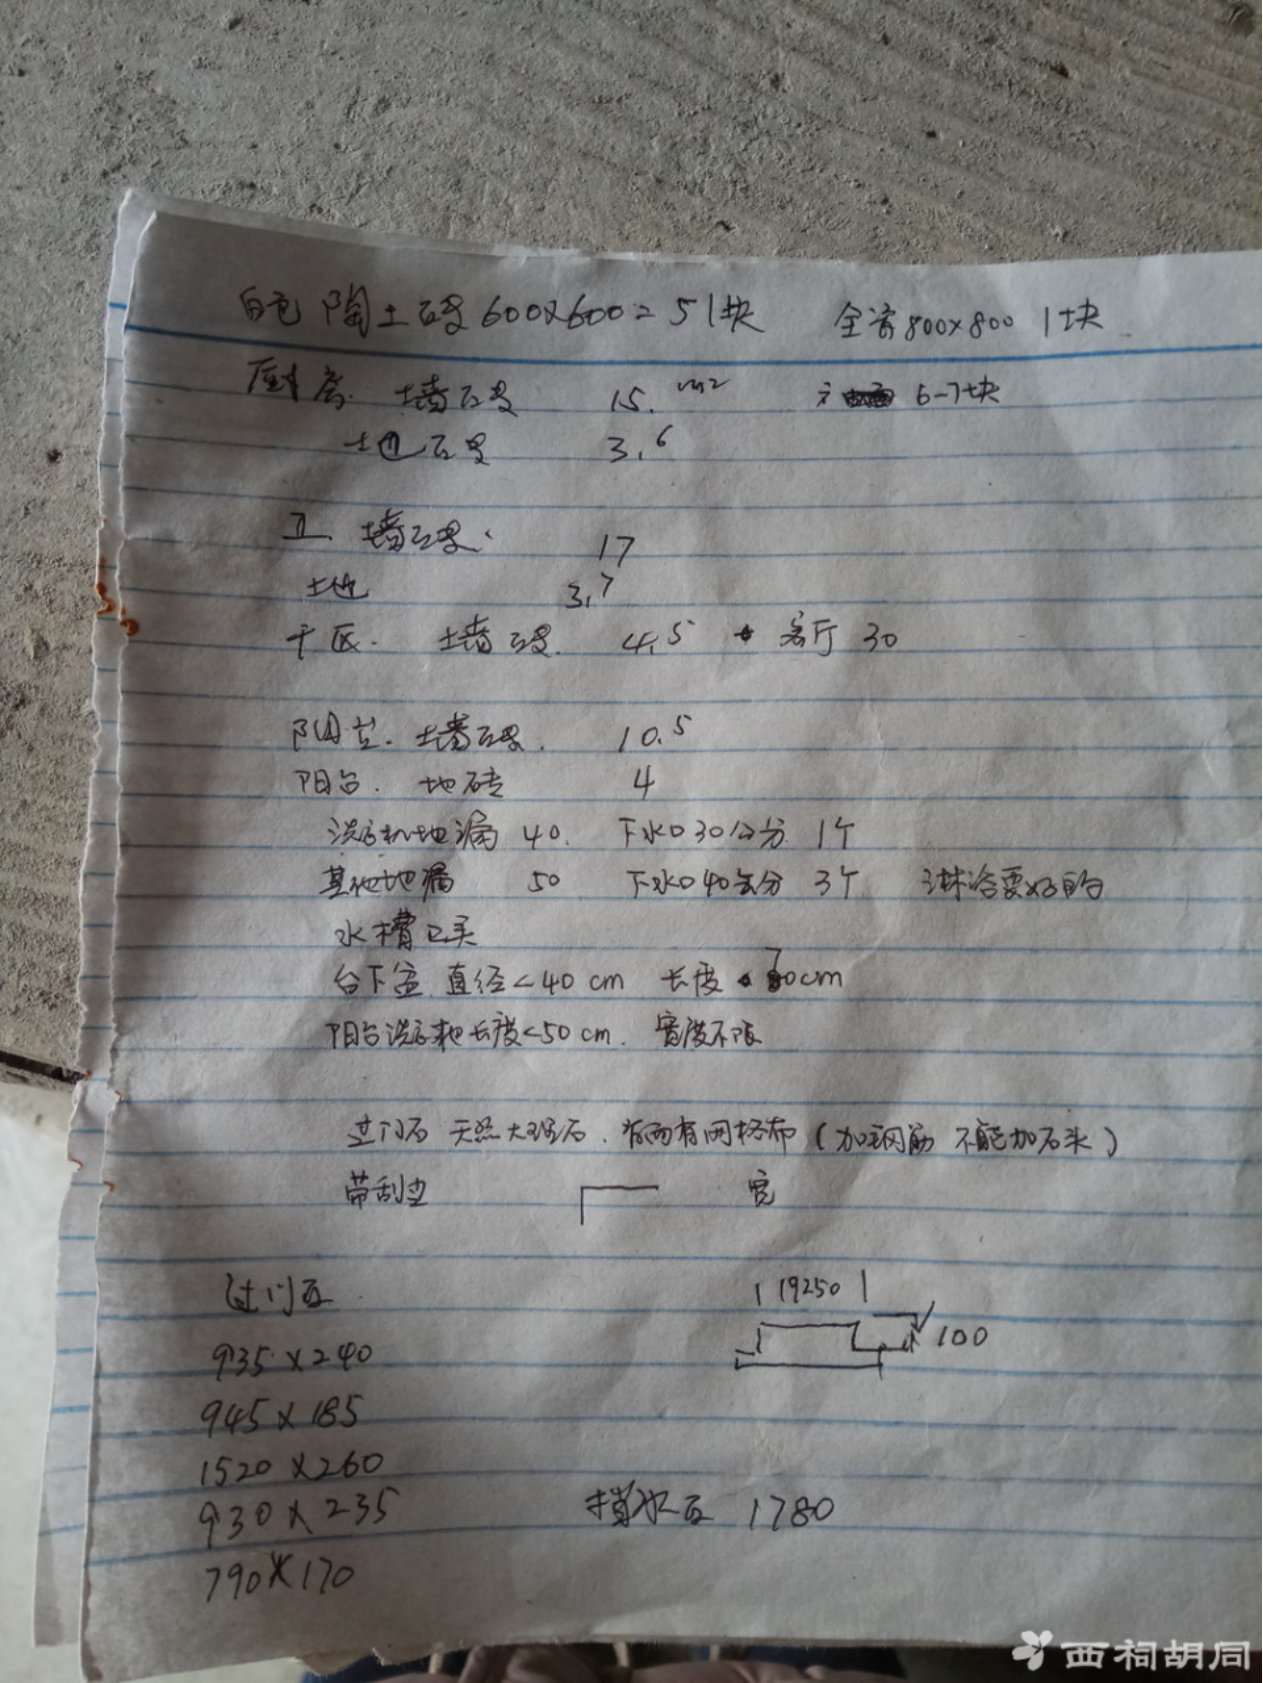 白色 陶土砖 600×600=51块 全瓷800×800 1块
厨房. 墙砖 15. m2 6-7块
地砖 3.6
卫 墙砖. 17
地 3.7
干区. 墙砖. 4.5 客厅 30
阳台. 墙砖. 10.5
阳台. 地砖 4
洗衣机地漏 40. 下水口30公分 1个
其他地漏 50 下水口40公分 3个 淋浴要好的
水槽已买
台下盆 直径<40cm 长度 70cm
阳台洗衣池长度<50cm. 宽度不限
过门石 天然大理石. 背面有网格布(加钢筋 不能加石头)
带刮边 宽
过门石
935×240
945×185
1520×260
930×235
790×170
19250
100
挡水石 1780
西祠胡同